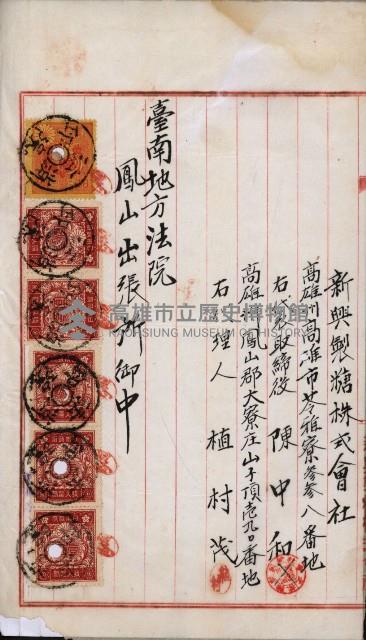 新興製糖株式會社
高雄州高雄市苓雅寮參參八番地
右代取締役 陳中和
高雄州鳳山郡大寮庄山子頂壱九〇番地
右代理人 植村茂
臺南地方法院
鳳山出張所御中
高雄市立歷史博物館
KAOHSIUNG MUSEUM OF HISTORY